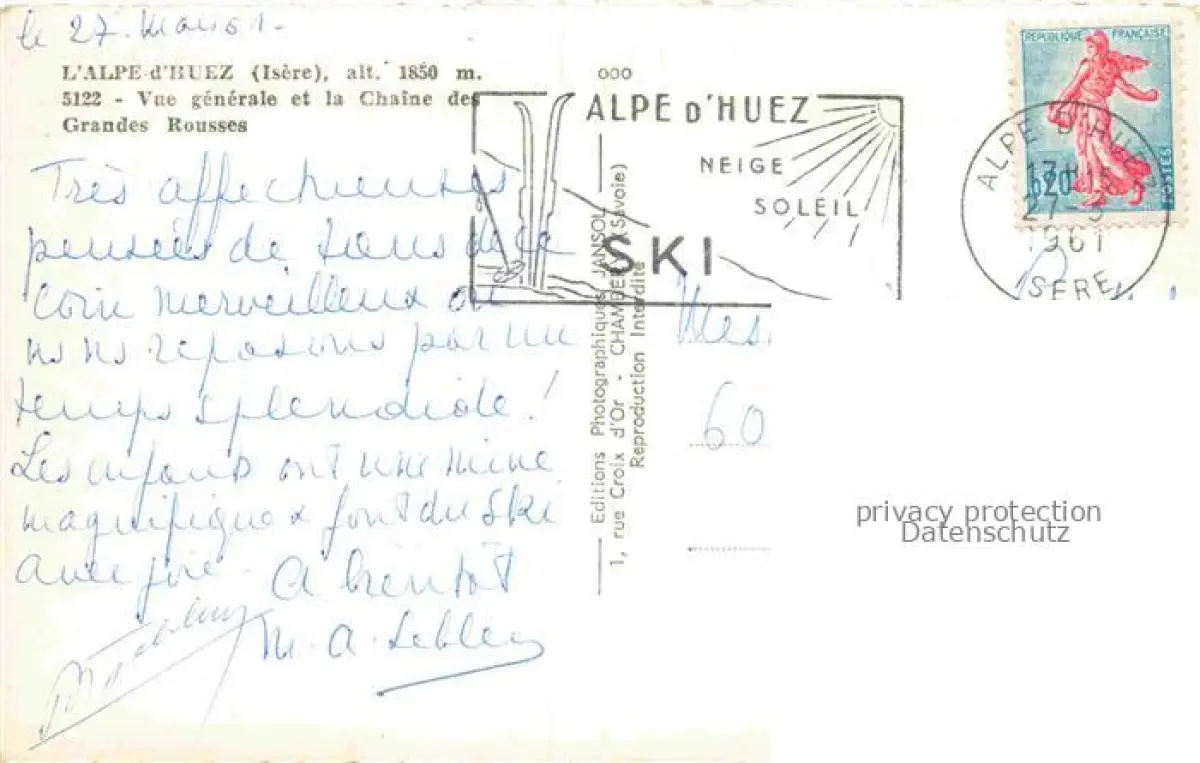 le 27. Mars 61.
L'ALPE-d'HUEZ (Isère), alt. 1850 m.
5122 - Vue générale et la Chaine des
Grandes Rousses
Très affectueuses
pensées de nous de ce
coin merveilleux où
nous reposons par un
temps splendide !
Les enfants ont une mine
magnifique & font du Ski
avec joie. A bientôt
M. A. Lebleu
000
ALPE D'HUEZ
NEIGE
SOLEIL
SKI
Editions Photographiques JANSOL
1, rue Croix d'Or - CHAMBÉRY (Savoie)
Reproduction Interdite
REPUBLIQUE FRANÇAISE
0,20
POSTES
ALPE D'HUEZ
17H15
27-3
1961
ISÈRE
Mes
60
privacy protection
Datenschutz